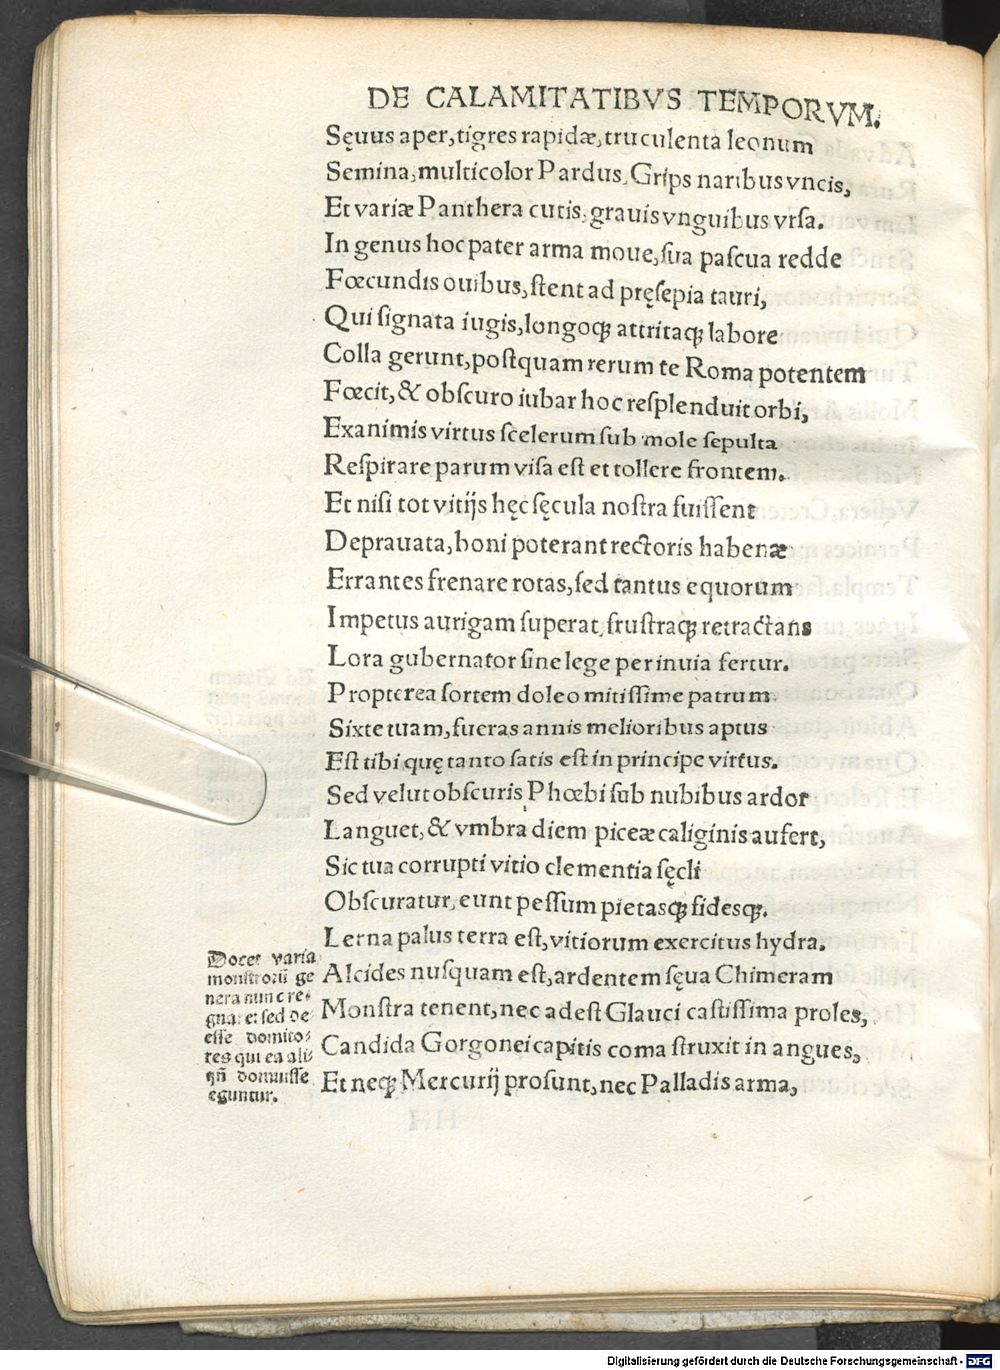 DE CALAMITATIBVS TEMPORVM.
Sęuus aper, tigres rapidæ, truculenta leonum
Semina, multicolor Pardus, Grips naribus vncis,
Et variæ Panthera cutis, grauis vnguibus vrſa.
In genus hoc pater arma moue, ſua paſcua redde
Fœcundis ouibus, ſtent ad pręſepia tauri,
Qui ſignata iugis, longoqꝫ attritaqꝫ labore
Colla gerunt, poſtquam rerum te Roma potentem
Fœcit, & obſcuro iubar hoc reſplenduit orbi,
Exanimis virtus ſcelerum ſub mole ſepulta
Reſpirare parum viſa eſt et tollere frontem.
Et niſi tot vitijs hęc ſęcula noſtra fuiſſent
Deprauata, boni poterant rectoris habenæ
Errantes frenare rotas, ſed tantus equorum
Impetus aurigam ſuperat, fruſtraqꝫ retractans
Lora gubernator ſine lege per inuia fertur.
Propterea ſortem doleo mitiſſime patrum
Sixte tuam, fueras annis melioribus aptus
Eſt tibi quę tanto ſatis eſt in principe virtus.
Sed velut obſcuris Phœbi ſub nubibus ardor
Languet, & vmbra diem piceæ caliginis aufert,
Sic tua corrupti vitio clementia ſęcli
Obſcuratur, eunt peſſum pietasqꝫ fidesqꝫ.
Lerna palus terra eſt, vitiorum exercitus hydra.
Alcides nuſquam eſt, ardentem ſęua Chimeram
Monſtra tenent, nec adeſt Glauci caſtiſſima proles,
Candida Gorgonei capitis coma ſtruxit in angues,
Et neqꝫ Mercurij proſunt, nec Palladis arma,
Docet varia
monstroꝛū ge
nera nunc re⸗
gnare: sed de
esse domito⸗
res qui ea ali⸗
qn̄ domuisse
leguntur.
Digitalisierung gefördert durch die Deutsche Forschungsgemeinschaft - DFG